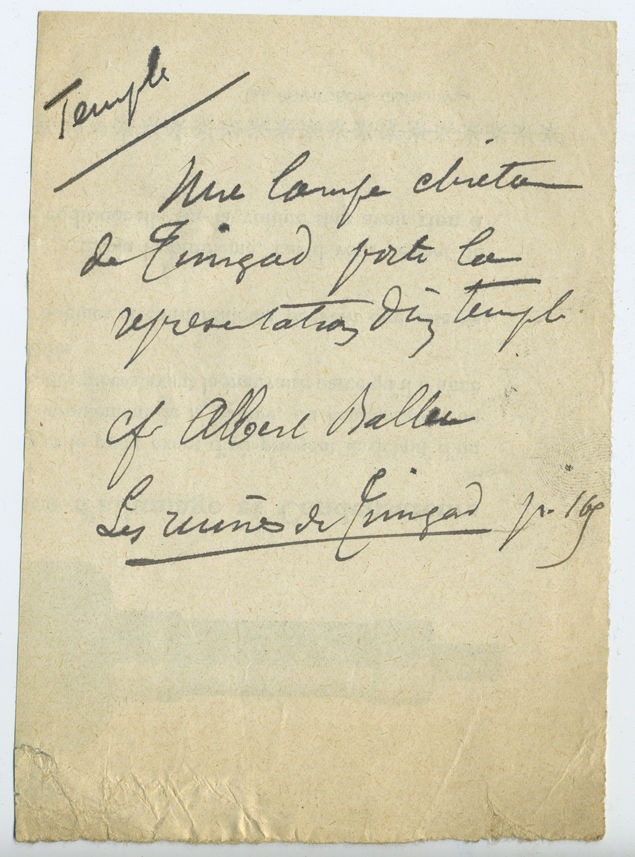 Temple
Une lampe chrétien
de Timgad porte la
representation d'un temple
cf Albert Ballu
Les ruines de Timgad p. 169